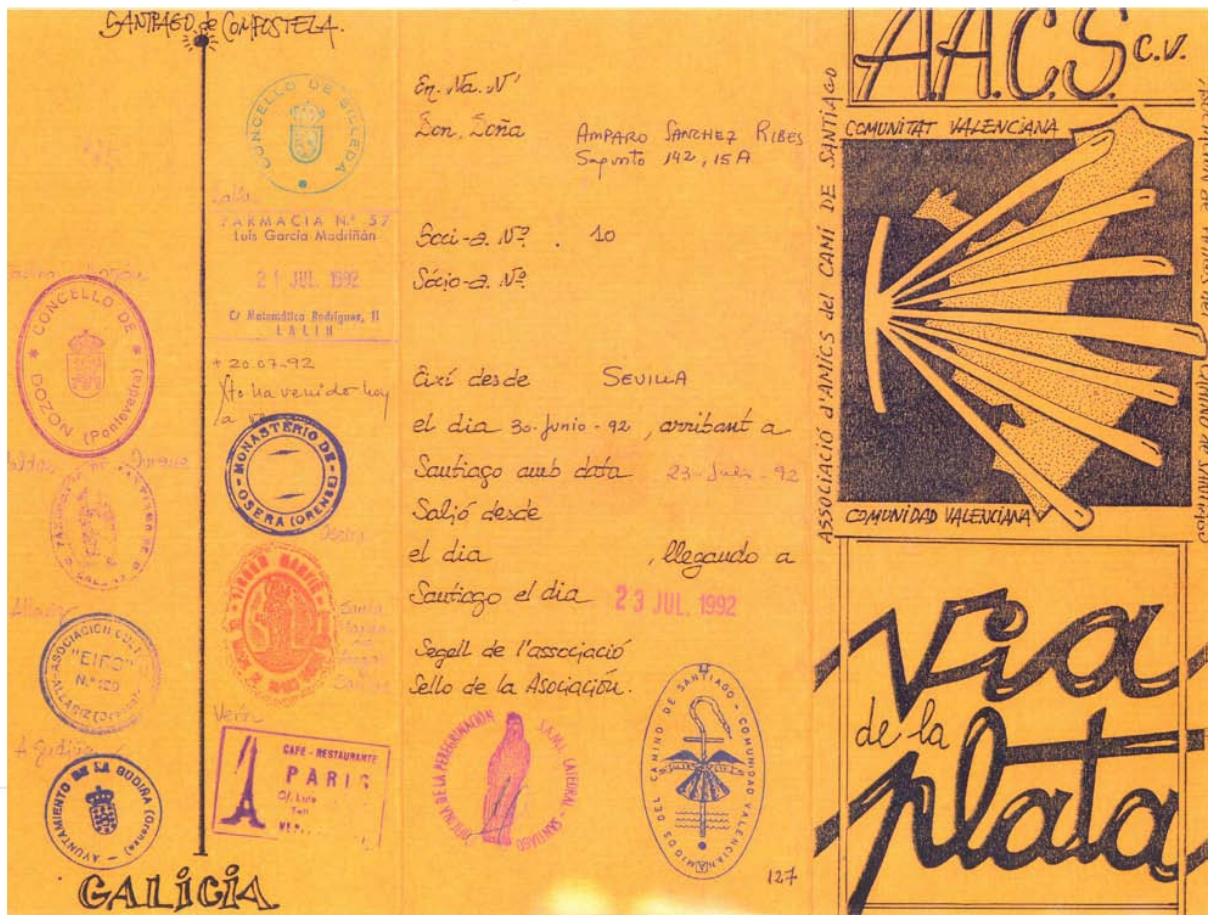 SANTIAGO de COMPOSTELA.
CONCELLO DE SILLEDA
Lalín
FARMACIA N.º 57
Luis García Madriñán
21 JUL. 1992
C/ Matemático Rodríguez, 11
LALIN
+ 20.07-92
Xto ha venido hoy
a
MONASTERIO DE
OSERA (ORENSE)
Osera
VIRGEN MARTIR
Santa
Marina
de
Aguas
Santas
Verín
CAFE - RESTAURANTE
PARIS
C/. Luis
CONCELLO DE
DOZON (Pontevedra)
Allariz
ASOCIACION
"EIRO"
N.º 129
ALLARIZ (Orense)
A Gudiña
AYUNTAMIENTO DE LA GUDIÑA (Orense)
GALICIA
En. Na. Nº
Don, Doña
AMPARO SANCHEZ RIBES
Sagunto 142, 15A
Soci-a. Nº. 10
Sócio-a. Nº
Eixí desde SEVILLA
el dia 30-Junio-92, arribant a
Santiago amb data 23-Julio-92
Salió desde
el dia , llegando a
Santiago el dia 23 JUL. 1992
Segell de l'associació
Sello de la Asociación.
OFICINA DE LA PEREGRINACION S.A.M.I. CATEDRAL - SANTIAGO
AMIGOS DEL CAMINO DE SANTIAGO - COMUNIDAD VALENCIANA
127
A.A.C.S. C.V.
ASSOCIACIÓ d'AMICS del CAMÍ DE SANTIAGO
COMUNITAT VALENCIANA
COMUNIDAD VALENCIANA
ASOCIACIÓN de AMIGOS del CAMINO de SANTIAGO
Via
de la
plata